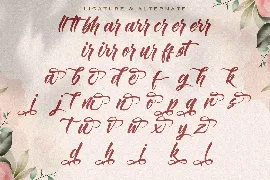 LIGATURE & ALTERNATE
ll tl bh ar arr cr er err
ir irr or ur ff st
a b d e f g h k
j j m n o p q r s
t u v w x y z
d h j k l